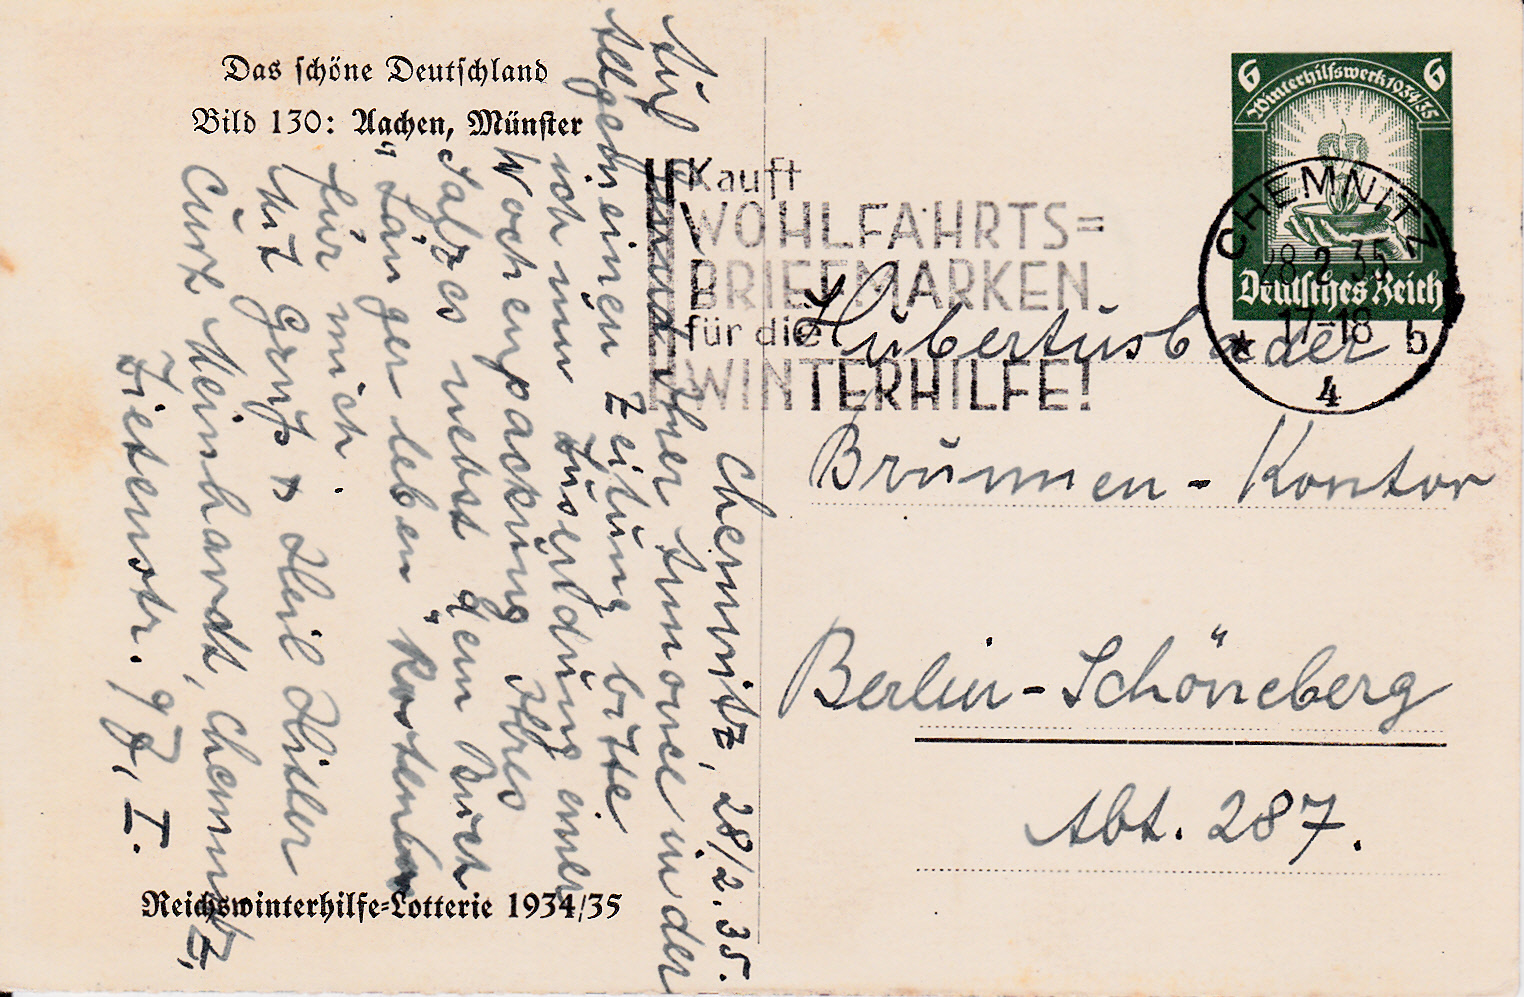 Das schöne Deutschland
Bild 130: Aachen, Münster
6 6
Winterhilfswerk 1934/35
Deutsches Reich
CHEMNITZ
28.2.35
17-18
* b
4
Kauft
WOHLFAHRTS=
BRIEFMARKEN
für die
WINTERHILFE!
Hubertusbader
Brunnen-Kontor
Berlin-Schöneberg
Abt. 287.
Chemnitz, 28/2.35.
Auf Grund Ihrer Annonce in der
Allgemeinen Zeitung bitte
ich um Zusendung einer
Wochenpackung Ihres
Salzes nebst dem Buch
"Länger leben" kostenlos
für mich.
Mit Gruß & Heil Hitler
Curt Meinhardt, Chemnitz,
Zietenstr. 97, I.
Reichswinterhilfe-Lotterie 1934/35